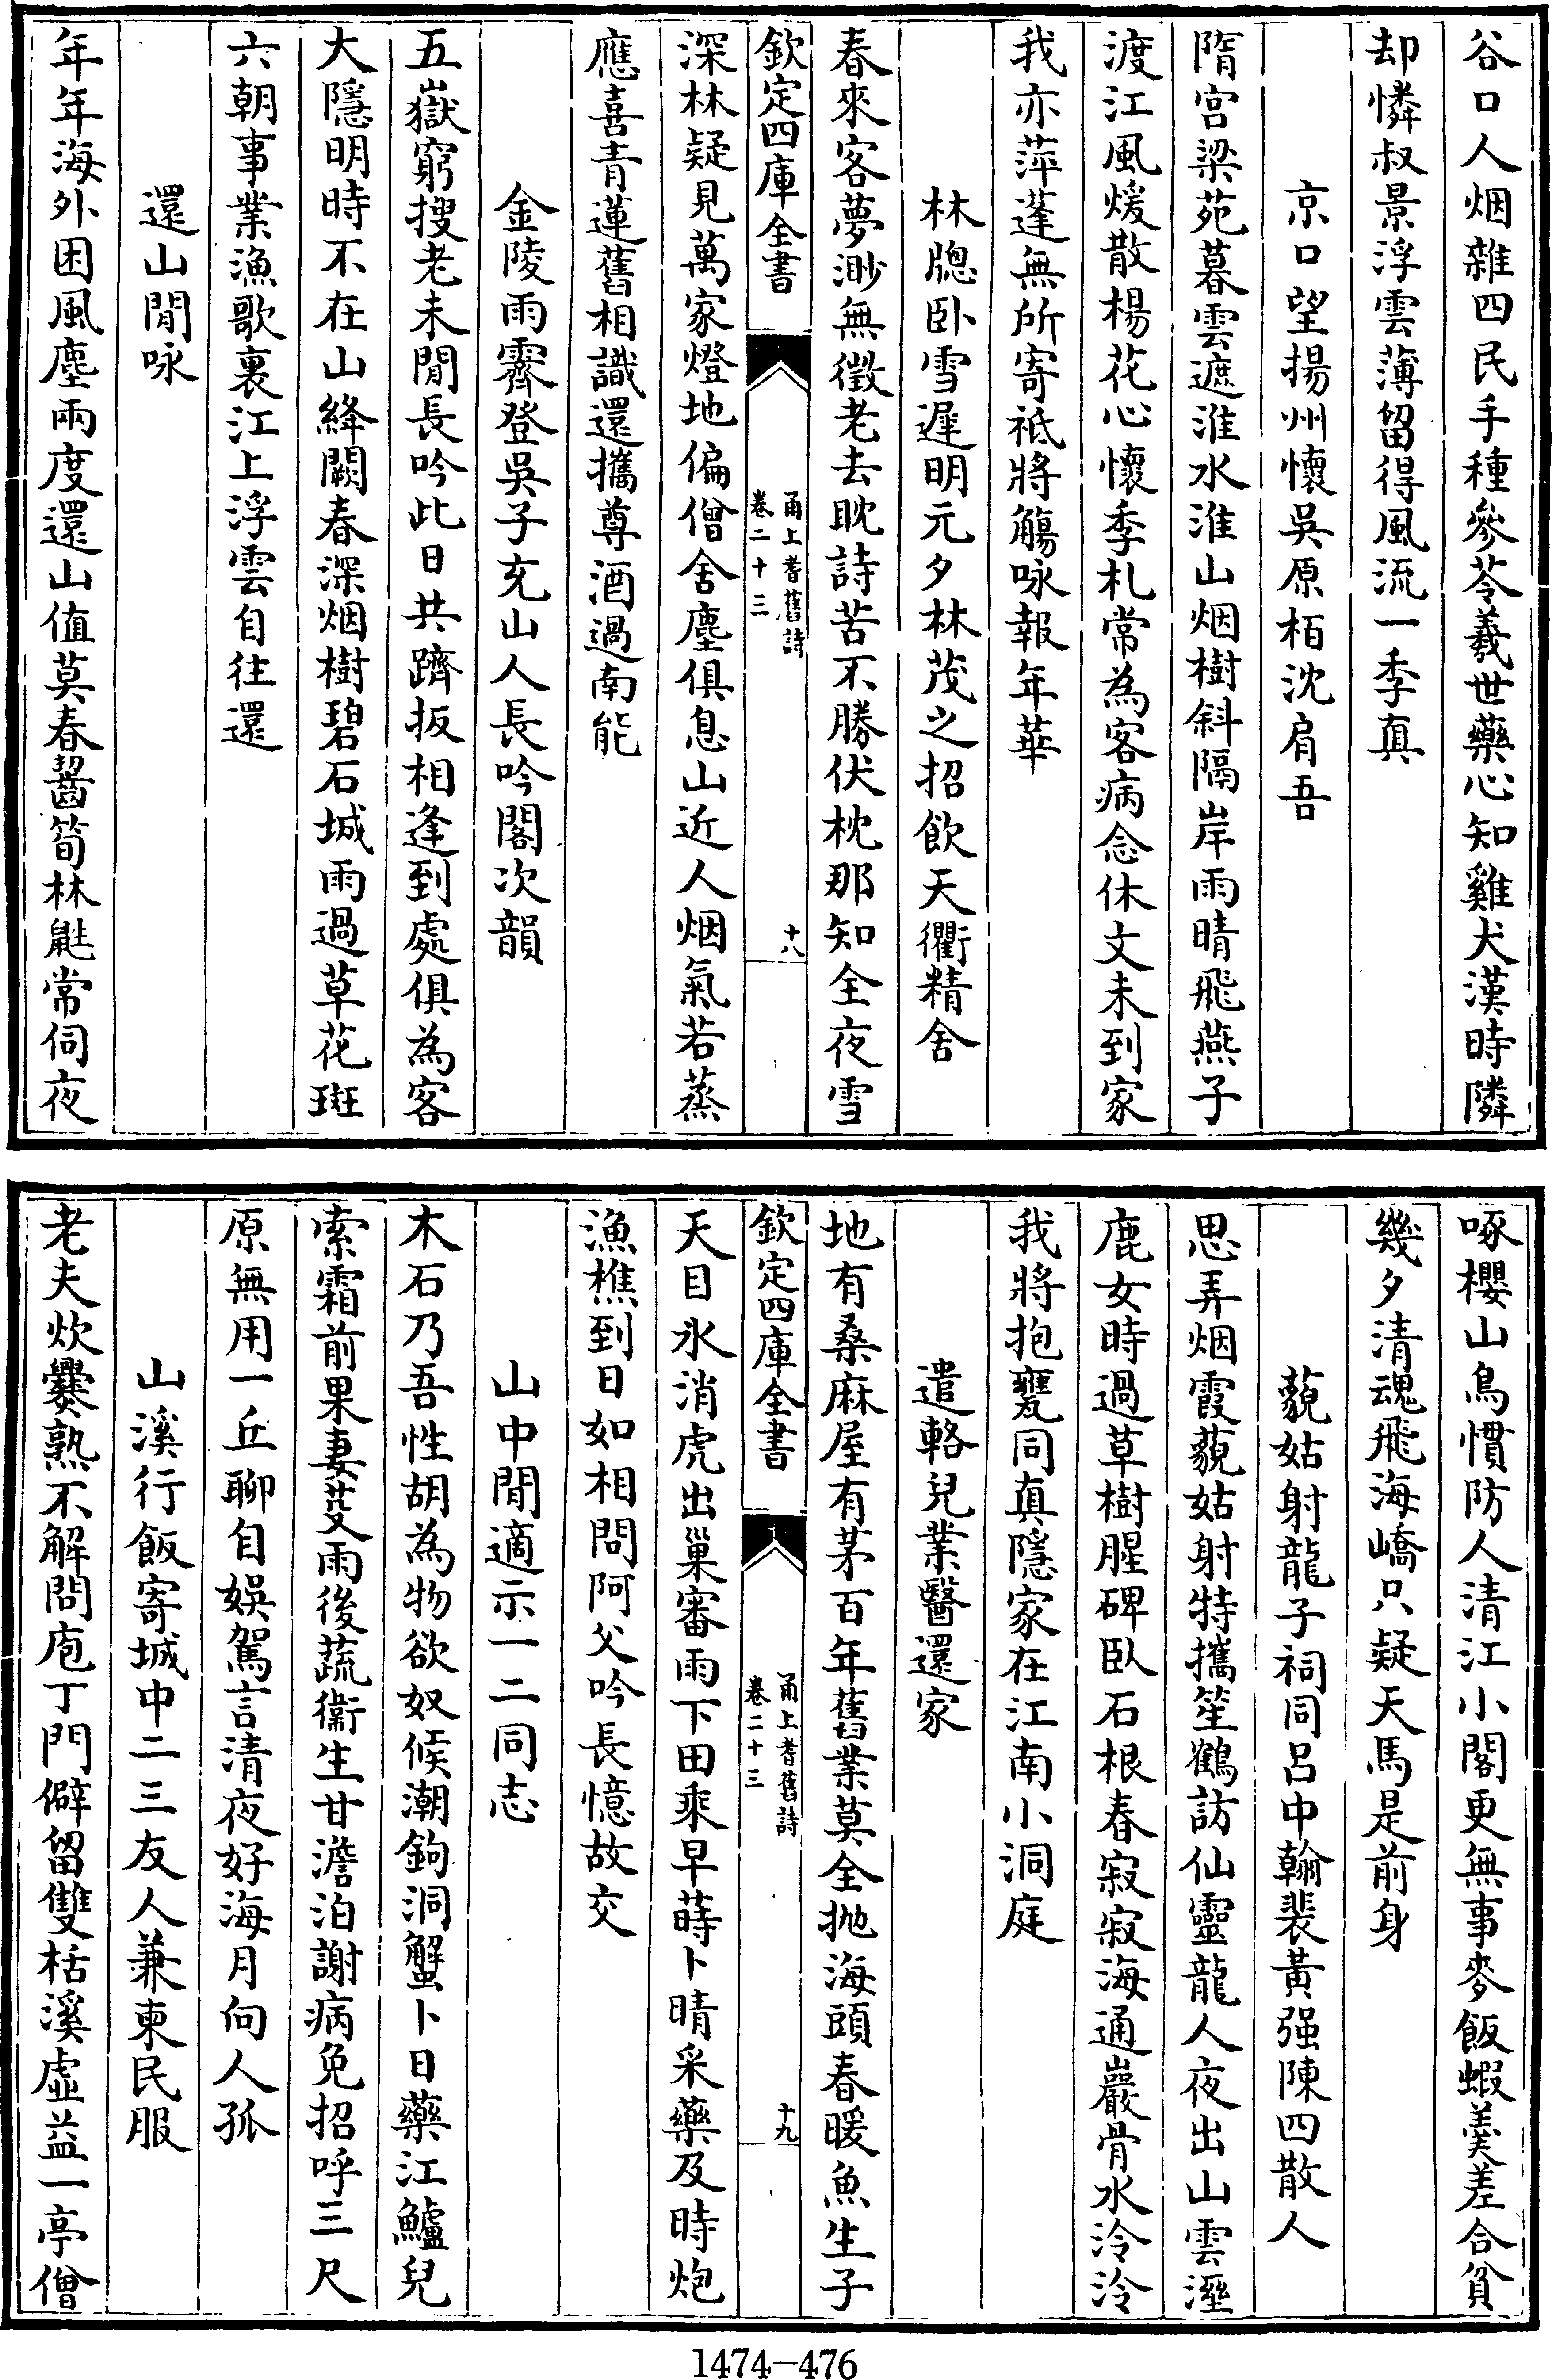 谷口人烟雜四民手種參苓羲世藥心知雞犬漢時隣
却憐叔景浮雲薄留得風流一季真
京口望揚州懷吳原栢沈肩吾
隋宫梁苑暮雲遮淮水淮山烟樹斜隔岸雨晴飛燕子
渡江風煖散楊花心懷季札常為客病念休文未到家
我亦萍蓬無所寄祗將觴咏報年華
林牕卧雪遲明元夕林茂之招飲天衢精舍
春來客夢渺無徵老去耽詩苦不勝伏枕那知全夜雪
欽定四庫全書
甬上耆舊詩
卷二十三
十八
深林疑見萬家燈地偏僧舍塵俱息山近人烟氣若蒸
應喜青蓮舊相識還攜尊酒過南能
金陵雨霽登吳子充山人長吟閣次韻
五嶽窮搜老未閒長吟此日共躋扳相逢到處俱為客
大隱明時不在山絳闕春深烟樹碧石城雨過草花斑
六朝事業漁歌裏江上浮雲自往還
還山閒咏
年年海外困風塵兩度還山值莫春齧筍林鼪常伺夜
啄櫻山鳥慣防人清江小閣更無事麥飯蝦羹差合貧
幾夕清魂飛海嶠只疑天馬是前身
藐姑射龍子祠同呂中翰裴黃强陳四散人
思弄烟霞藐姑射特攜笙鶴訪仙靈龍人夜出山雲溼
鹿女時過草樹腥碑臥石根春寂寂海通巖骨水泠泠
我將抱甕同真隱家在江南小洞庭
遣輅兒業醫還家
地有桑麻屋有茅百年舊業莫全抛海頭春暖魚生子
欽定四庫全書
甬上耆舊詩
卷二十三
十九
天目氷消虎出巢審雨下田乘早蒔卜晴采藥及時炮
漁樵到日如相問阿父吟長憶故交
山中閒適示一二同志
木石乃吾性胡為物欲奴候潮鉤洞蟹卜日藥江鱸兒
索霜前果妻芟雨後蔬衞生甘澹泊謝病免招呼三尺
原無用一丘聊自娛駕言清夜好海月向人孤
山溪行飯寄城中二三友人兼柬民服
老夫炊爨熟不解問庖丁門僻留雙栝溪虛益一亭僧
1474-476